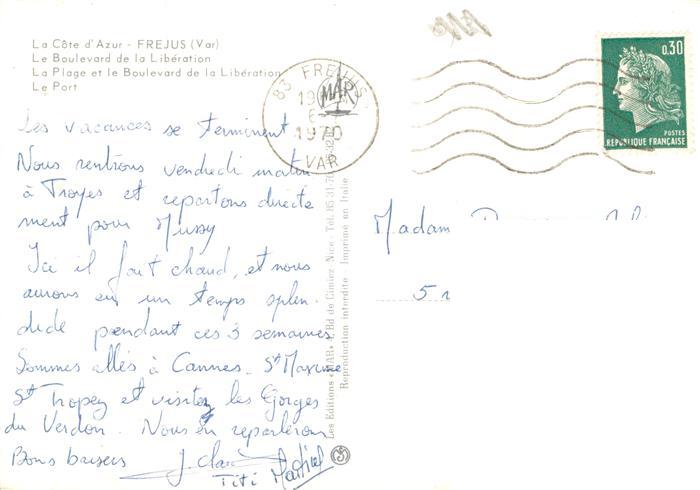 La Côte d'Azur - FREJUS (Var)
Le Boulevard de la Libération
La Plage et le Boulevard de la Libération
Le Port
83 FREJUS
1970
VAR
0,30
POSTES
REPUBLIQUE FRANÇAISE
Les vacances se terminent
Nous rentrons vendredi matin
à Troyes et repartons directe
ment pour Mussy
Ici il fait chaud, et nous
aurons eu un temps splen-
dide pendant ces 3 semaines
Sommes allés à Cannes. St Maxime
St Tropez et visitez les Gorges
du Verdon. Nous en reparlerons
Bons baisers
Titi
Madam
Les Editions «MAR» Bd de Cimiez, Nice - Tel.
Reproduction interdite - Imprimé en Italie